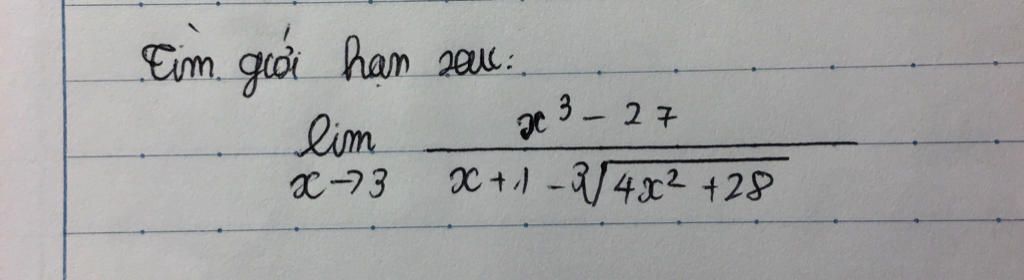 Tìm giới hạn sau:
lim x→3 (x³ - 27) / (x + 1 - ∛(4x² + 28))